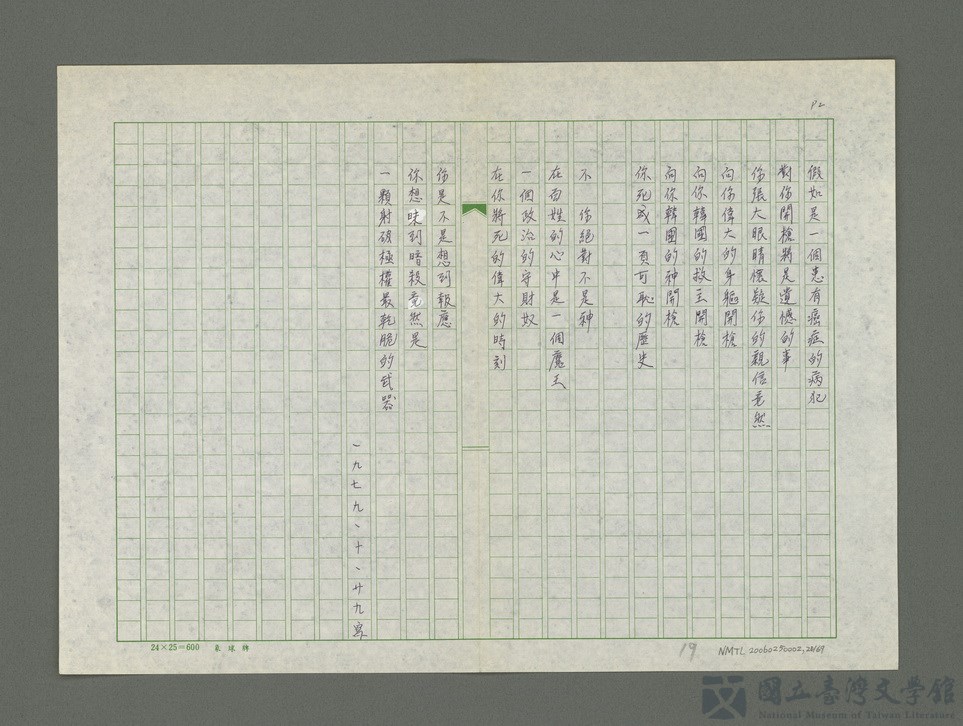 P2
假如是一個患有癌症的病犯
對你開槍將是遺憾的事
你張大眼睛懷疑你的親信竟然
向你偉大的身軀開槍
向你韓國的救主開槍
向你韓國的神開槍
你死成一頁可恥的歷史
不 你絕對不是神
在百姓的心中是一個魔王
一個政治的守財奴
在你將死的偉大的時刻
你是不是想到報應
你想味到暗殺竟然是
一顆射破極權最乾脆的武器
一九七九、十、廿九寫
24×25=600
19
NMTL 20060250002,28/69
國立臺灣文學館
National Museum of Taiwan Literature